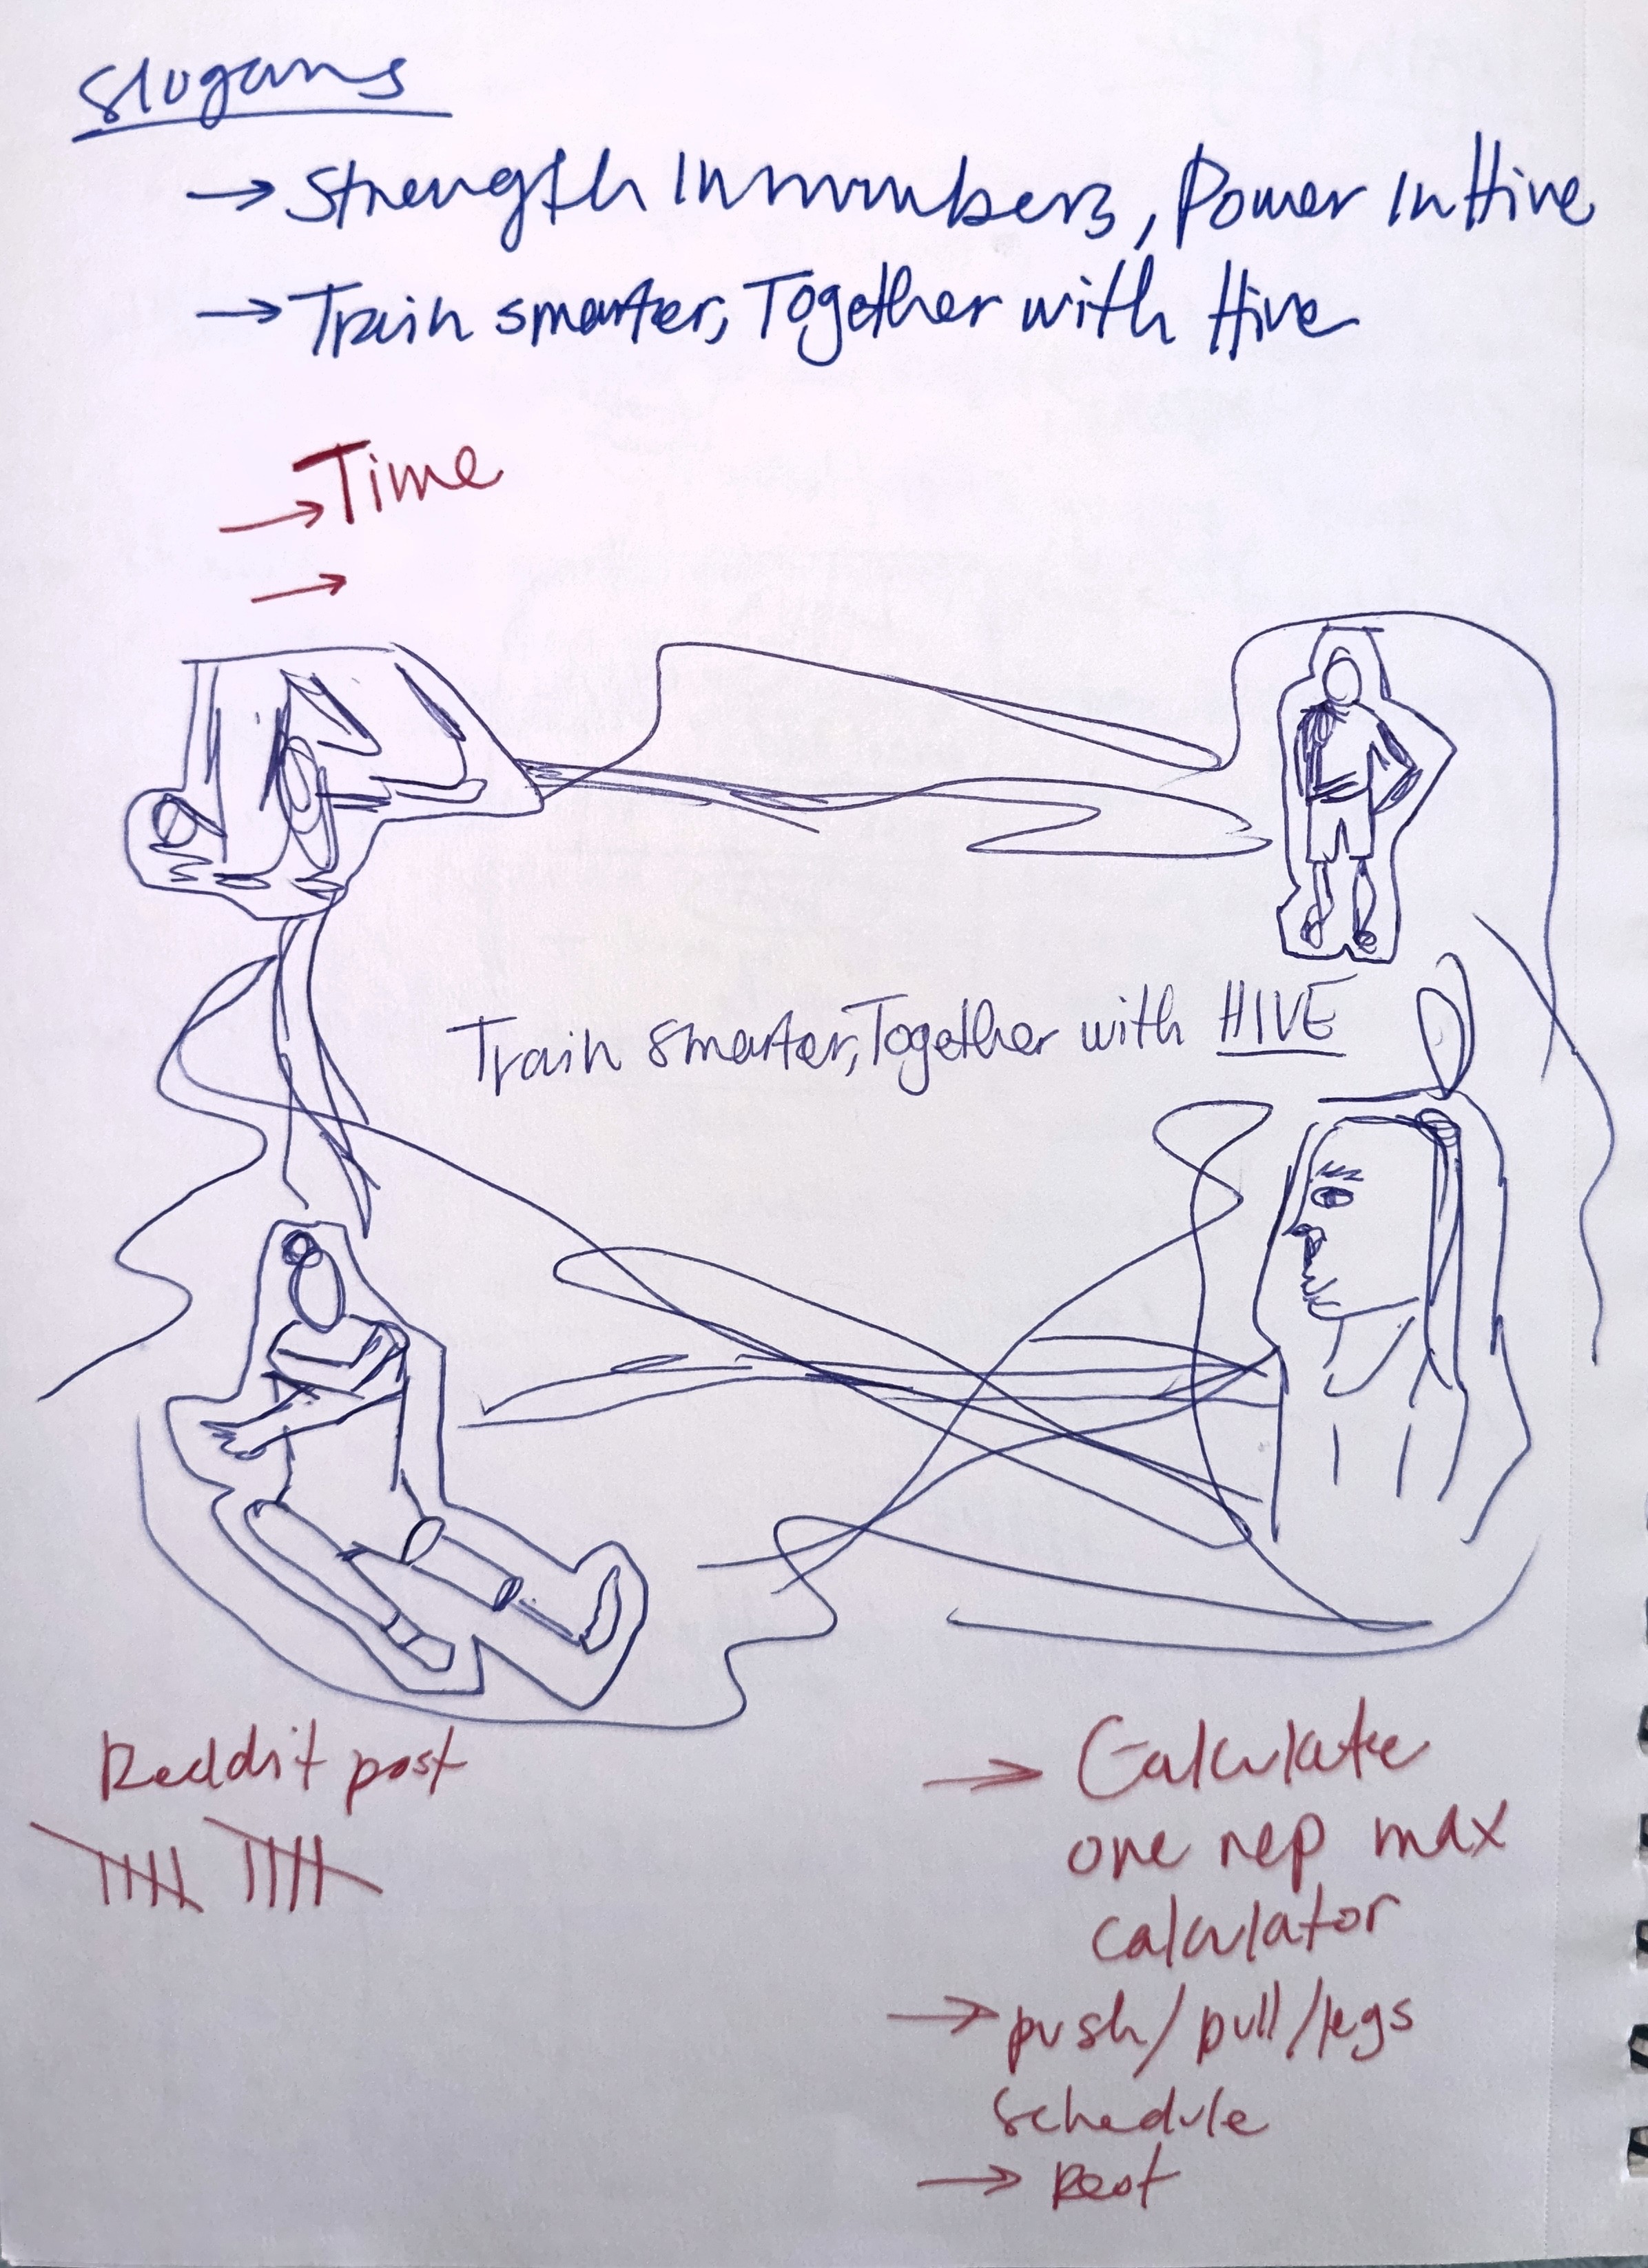 Slogans
→ Strength In numbers, Power In Hive
→ Train smarter, Together with Hive
→ Time
→
Train smarter, Together with HIVE
Reddit post
→ Calculate
one rep max
calculator
→ push/pull/legs
schedule
→ Rest